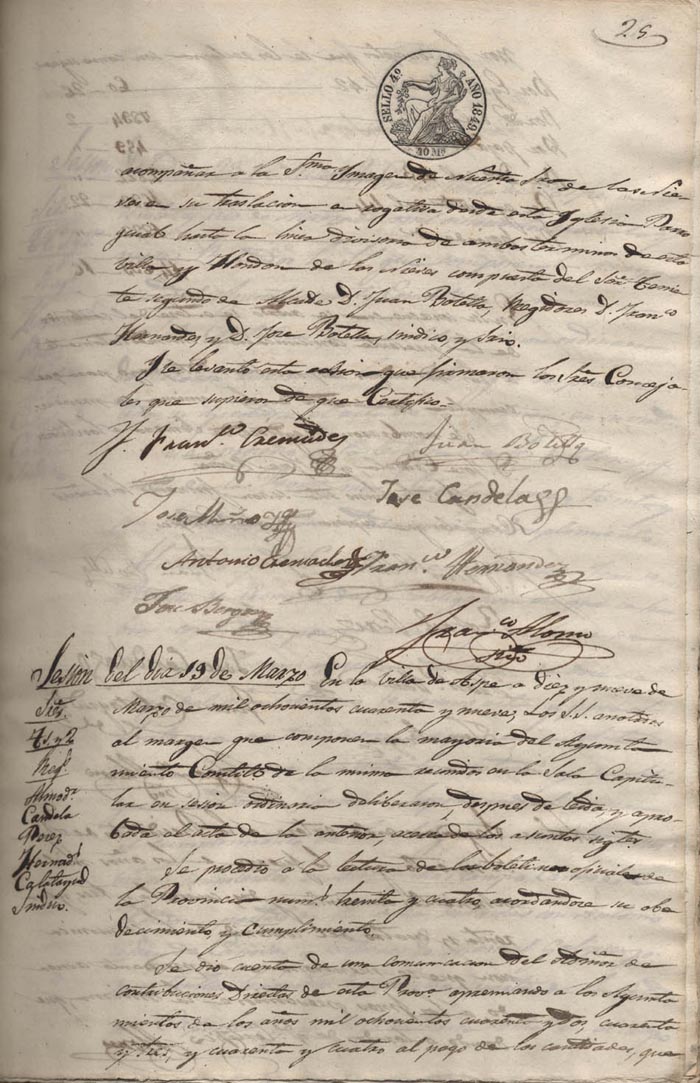 25
SELLO 4º AÑO 1849
40 Ms
acompañar a la Sma. Imagen de Nuestra Sra. de las Nie
ves en su traslacion en rogativa desde esta Iglesia Parro
quial hasta la linea divisoria de ambos terminos de esta
villa y Hondon de las Nieves compuesta del Sor. Tenien
te segundo de Alcalde D. Juan Botella, Regidores D. Franco.
Hernandez y D. Jose Botella, sindico, y Srio.
Y se levantó esta sesion que firmaron los Sres. Conceja-
les que supieron de que Certifico.=
Franco. Cremades
Juan Botella
Jose Candela
Jose Muñoz
Antonio Cremades
Franco. Hernandez
Jose
Franco. Alonso
Srio.
Session del dia 19 de Marzo
En la villa de Aspe a diez y nueve de
Marzo de mil ochocientos cuarenta y nueve, Los S.S. anotados
al margen que componen la mayoria del Ayunta
miento Constitl. de la misma reunidos en la Sala Capitu-
lar en sesion ordinaria deliberaron, despues de leida y apro-
bada el acta de la anterior, acerca de los asuntos sigtes.
Se procedio a la lectura de los boletines oficiales de
la Provincia num.s treinta y cuatro, acordandose su obe
decimiento, y cumplimiento.
Se dio cuenta de una comunicacion del Admor. de
contribuciones Directas de esta Prova. apremiando a los Ayunta
mientos de los años mil ochocientos cuarenta y dos, cuarenta
y tres, y cuarenta y cuatro al pago de las cantidades, que
Sres.
Ts. 1 y 2
Regs.
Almodr.
Candela
Perez
Hernads.
Calatayud
Sindico.